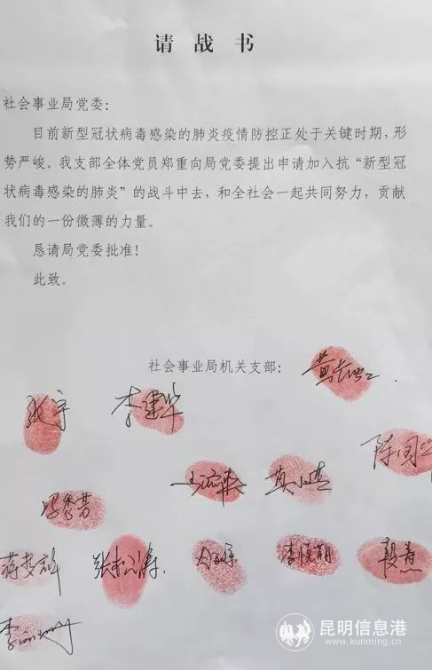 请战书
社会事业局党委:
目前新型冠状病毒感染的肺炎疫情防控正处于关键时期,形
势严峻。我支部全体党员郑重向局党委提出申请加入抗“新型冠
状病毒感染的肺炎”的战斗中去、和全社会一起共同努力,贡献
我们的一份微薄的力量。
恳请局党委批准!
此致。
社会事业局机关支部:
张宇 李建华
冯秀芳
段青
昆明信息港
www.kunming.cn